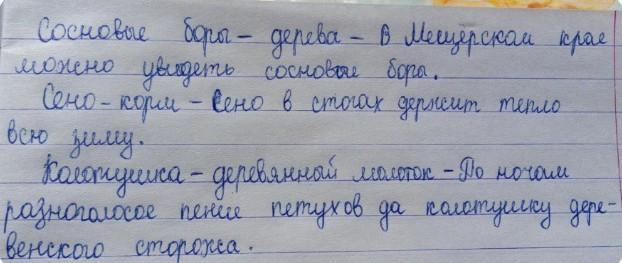 Сосновые боры - дерева - В Мещерском крае
можно увидеть сосновые боры.
Сено - корм - Сено в стогах держит тепло
всю зиму.
Колотушка - деревянный молоток - По ночам
разноголосое пение петухов да колотушку дере-
венского сторожа.